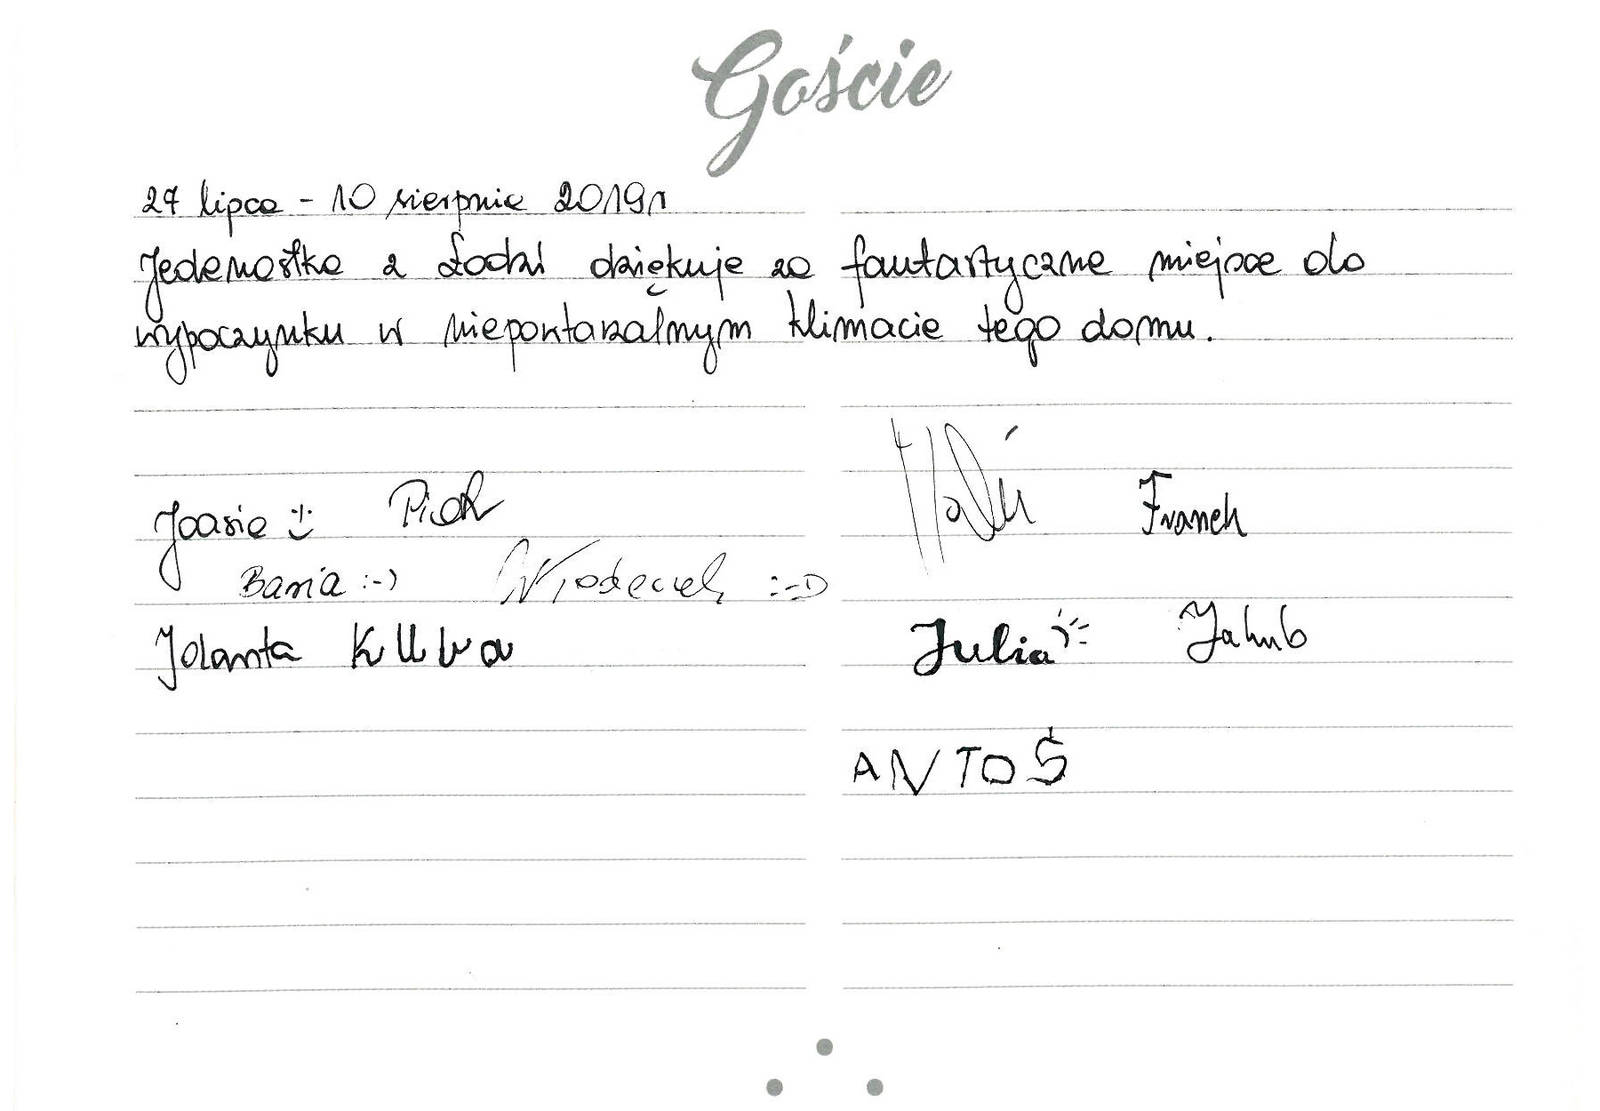 Goście
27 lipca - 10 sierpnia 2019r
Jedenastka z Łodzi dziękuje za fantastyczne miejsce do
wypoczynku w niepowtarzalnym klimacie tego domu.
Joasia :) Piotr Franek
Basia :-) :-D
Jolanta Julia Jakub
ANTOŚ